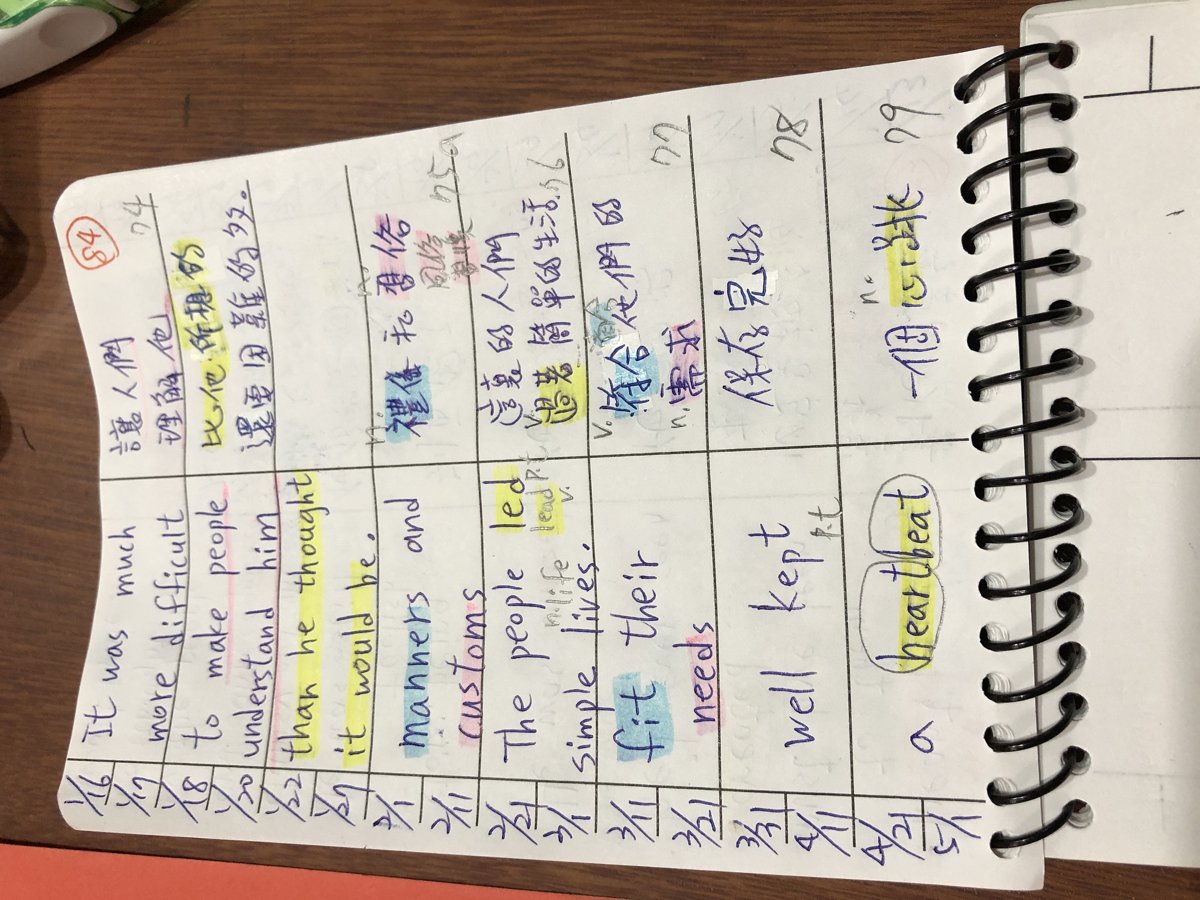 84
1/16 It was much 讓人們
1/17 more difficult 理解他 74
1/18 to make people 比他所想的
1/20 understand him 還要困難的多。
1/22 than he thought
1/27 it would be.
n. n.
2/1 manners and 禮儀和習俗
風俗 75a
2/11 customs 習慣
2/21 The people led 這裏的人們
lead p.t
n. life v. v.
3/1 simple lives. 過著簡單的生活. 76
v.
3/11 fit their 符合他們的
n.
3/21 needs 需求 77
3/31 well kept 保存完好 78
4/11 p.t
n.
4/21 a heartbeat 一個心跳 79
5/1